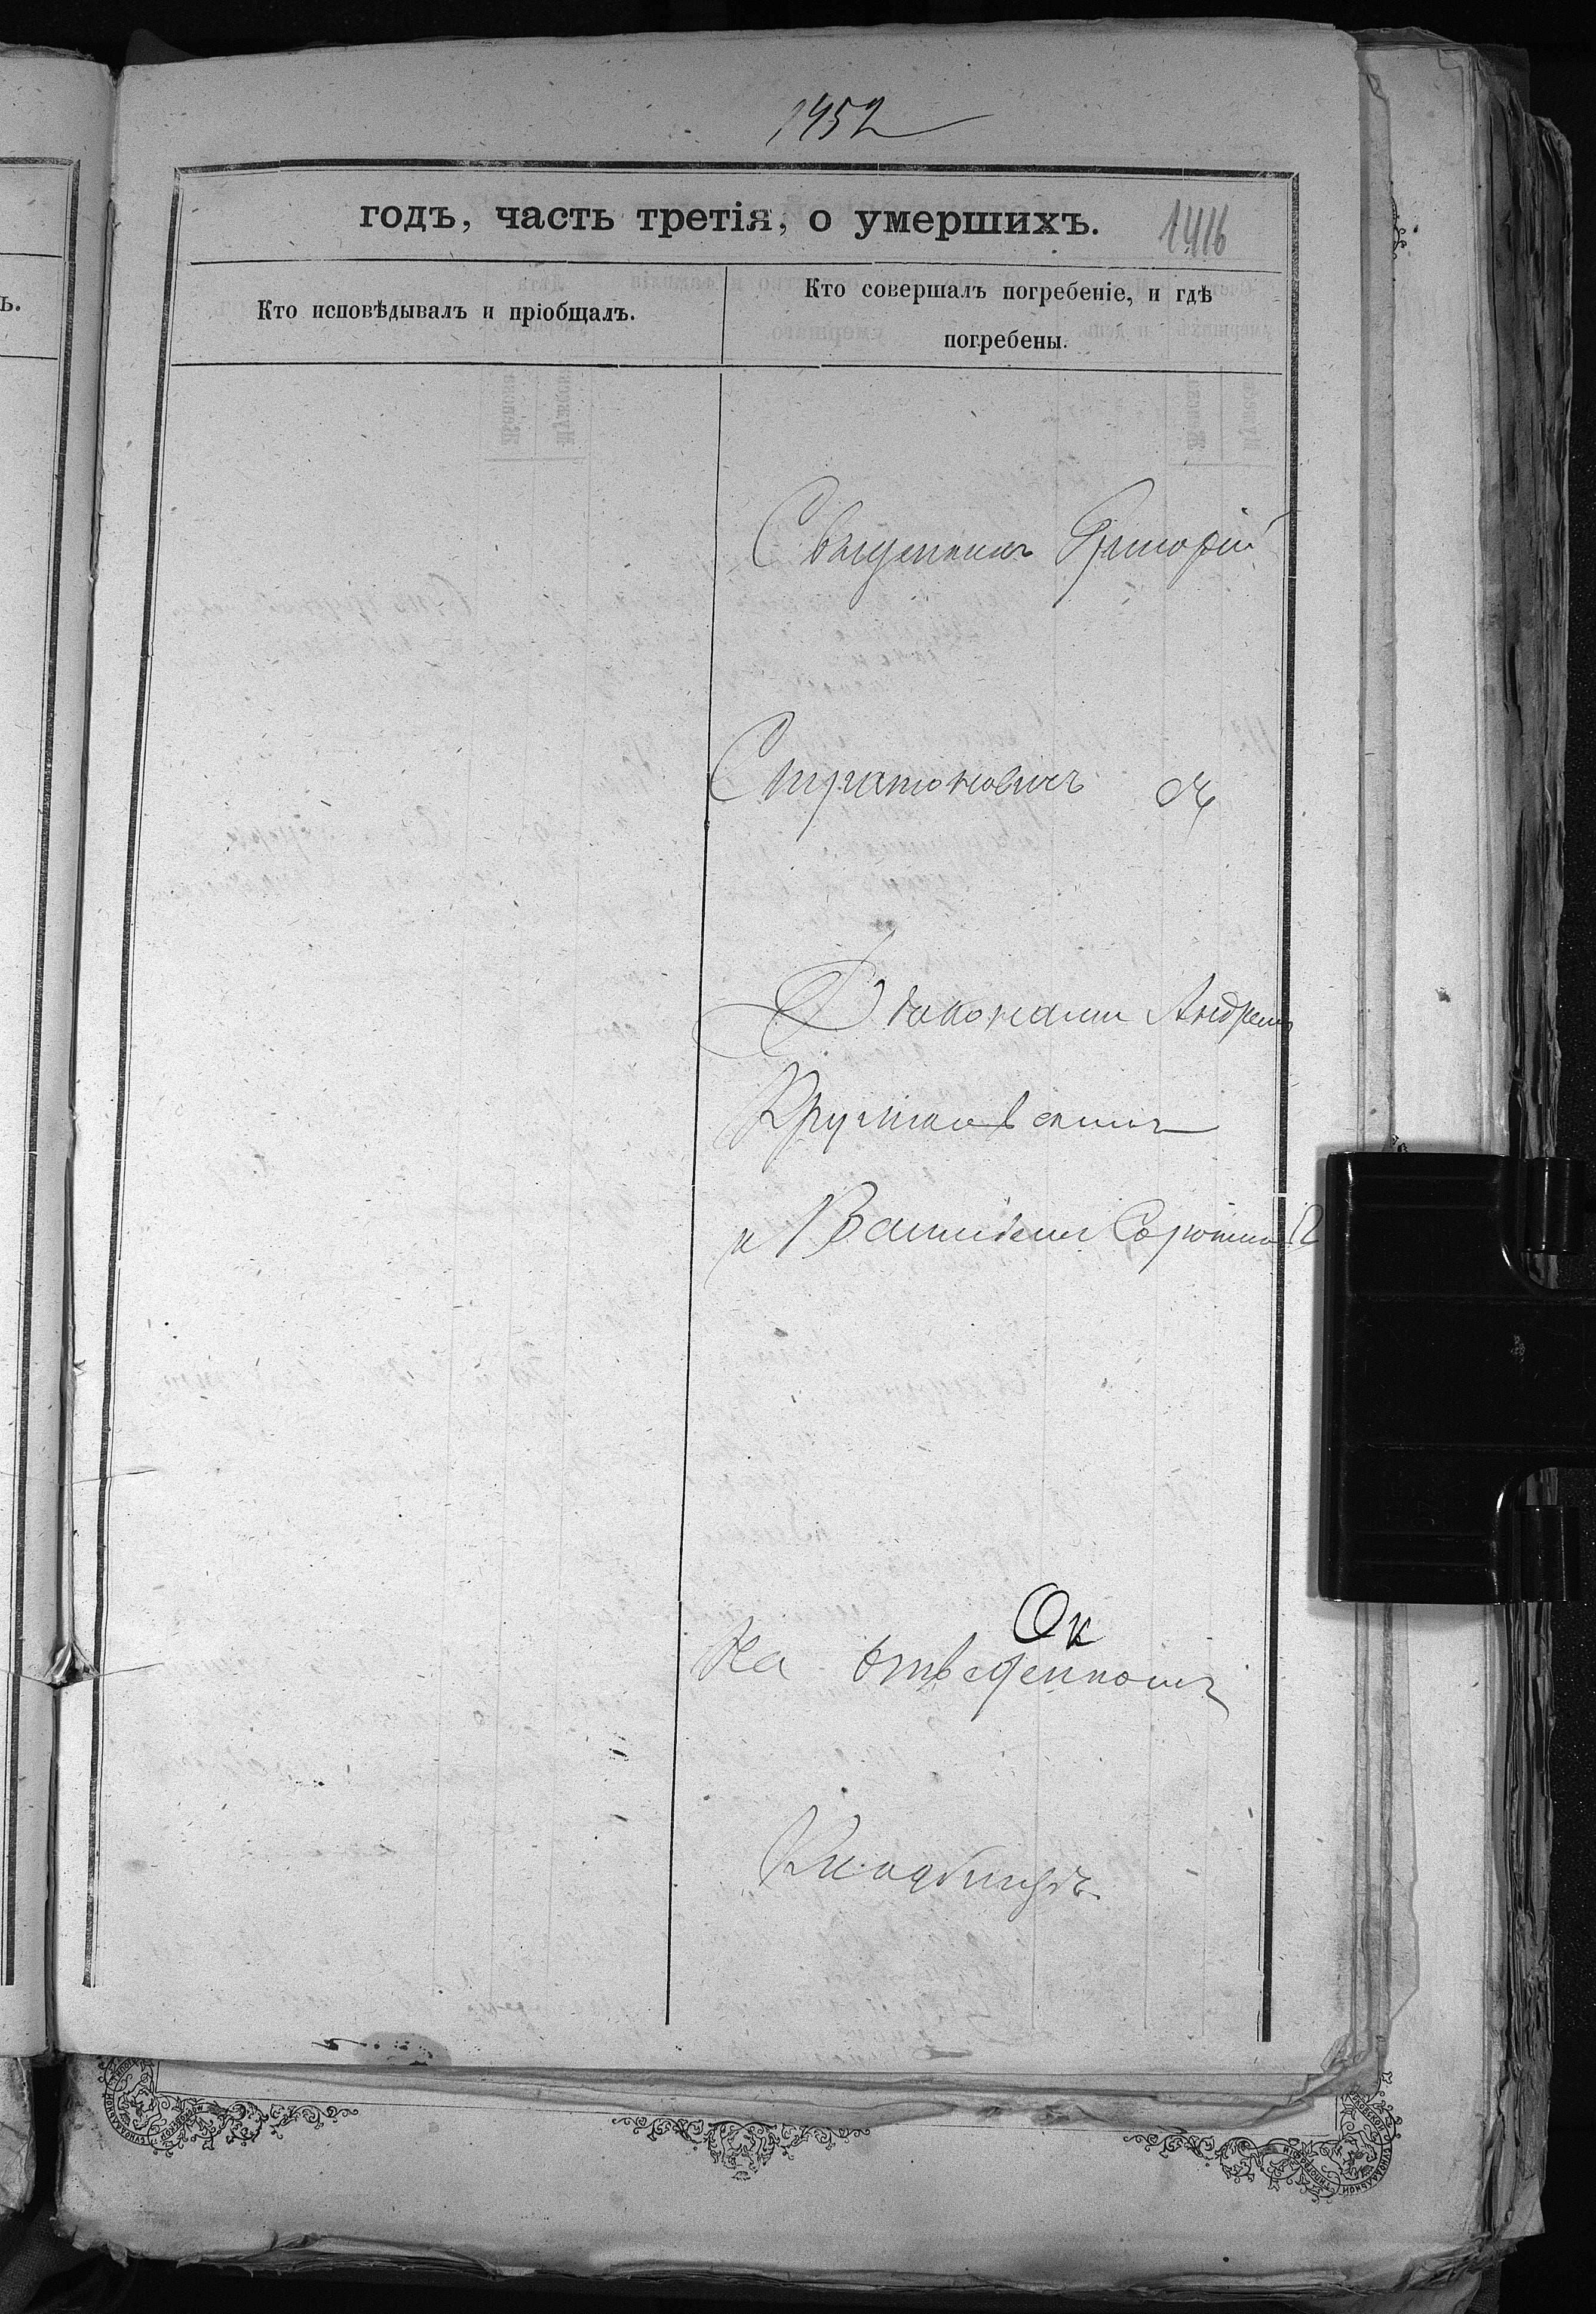 1452
годъ, часть третія, о умершихъ.
1416
Кто исповѣдывалъ и пріобщалъ.
Кто совершалъ погребеніе, и гдѣ
погребены.
Священникъ Григорій
Стратоновичъ съ
Діаконами Андреемъ
и
Ок
На отведенномъ
Кладбищѣ